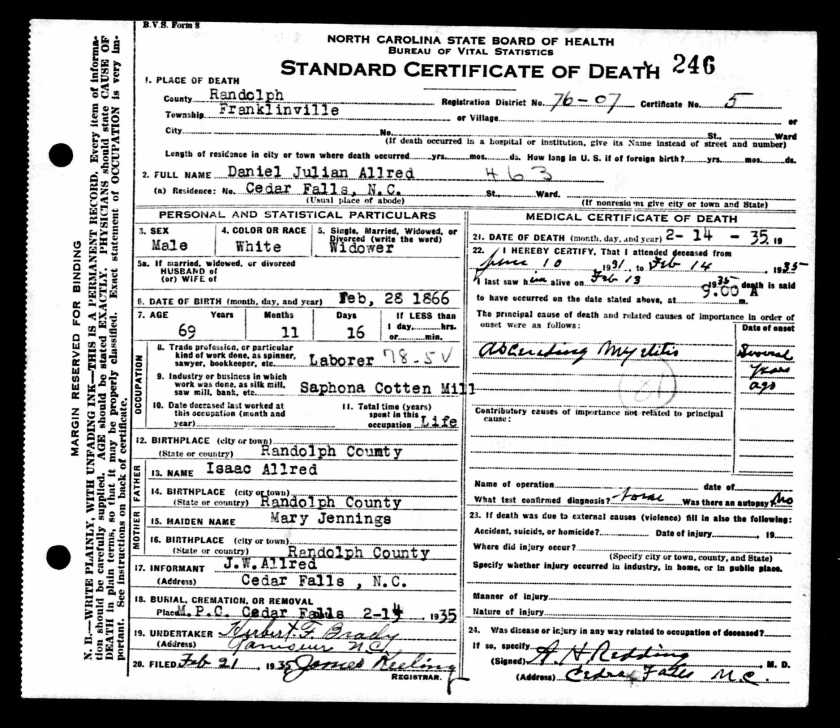 B.V.S. Form 8
NORTH CAROLINA STATE BOARD OF HEALTH
BUREAU OF VITAL STATISTICS
STANDARD CERTIFICATE OF DEATH 246
1. PLACE OF DEATH
County Randolph Registration District No. 76-07 Certificate No. 5
Township Franklinville or Village or
City No. St., Ward
(If death occurred in a hospital or institution, give its Name instead of street and number)
Length of residence in city or town where death occurred yrs. mos. ds. How long in U. S. if of foreign birth? yrs. mos. ds.
2. FULL NAME Daniel Julian Allred 463
(a) Residence: No. Cedar Falls, N.C. St., Ward.
(Usual place of abode) (If nonresident give city or town and State)
PERSONAL AND STATISTICAL PARTICULARS
3. SEX Male
4. COLOR OR RACE White
5. Single, Married, Widowed, or Divorced (write the word) Widower
5a. If married, widowed, or divorced
HUSBAND of
(or) WIFE of
6. DATE OF BIRTH (month, day, and year) Feb, 28 1866
7. AGE Years Months Days If LESS than
69 11 16 1 day, hrs.
or min.
OCCUPATION
8. Trade profession, or particular
kind of work done, as spinner,
sawyer, bookkeeper, etc. Laborer 78-5V
9. Industry or business in which
work was done, as silk mill,
saw mill, bank, etc. Saphona Cotten Mill
10. Date deceased last worked at
this occupation (month and
year)
11. Total time (years)
spent in this
occupation Life
12. BIRTHPLACE (city or town)
(State or country) Randolph County
FATHER
13. NAME Isaac Allred
14. BIRTHPLACE (city or town)
(State or country) Randolph County
MOTHER
15. MAIDEN NAME Mary Jennings
16. BIRTHPLACE (city or town)
(State or country) Randolph County
17. INFORMANT J.W.Allred
(Address) Cedar Falls , N.C.
18. BURIAL, CREMATION, OR REMOVAL
Place M.P.C. Cedar Falls 2-15 1935
19. UNDERTAKER Herbert F. Brady
(Address) Ramseur N.C.
20. FILED Feb 21, 1935 James Keeling
REGISTRAR.
MEDICAL CERTIFICATE OF DEATH
21. DATE OF DEATH (month, day, and year) 2- 14 - 35 19
22. I HEREBY CERTIFY, That I attended deceased from
June 10 1931 to Feb 14 1935
I last saw him alive on Feb 13 1935 death is said
to have occurred on the date stated above, at 9:00 A m.
The principal cause of death and related causes of importance in order of
onset were as follows: Date of onset
Ascending Myelitis Several
years
ago
Contributory causes of importance not related to principal
cause:
Name of operation date of
What test confirmed diagnosis? None Was there an autopsy? No
23. If death was due to external causes (violence) fill in also the following:
Accident, suicide, or homicide? Date of injury , 19
Where did injury occur?
(Specify city or town, county, and State)
Specify whether injury occurred in industry, in home, or in public place.
Manner of injury
Nature of injury
24. Was disease or injury in any way related to occupation of deceased?
If so, specify
(Signed) A H Redding M. D.
(Address) Cedar Falls N.C.
MARGIN RESERVED FOR BINDING
N. B.—WRITE PLAINLY, WITH UNFADING INK—THIS IS A PERMANENT RECORD. Every item of informa-
tion should be carefully supplied. AGE should be stated EXACTLY. PHYSICIANS should state CAUSE OF
DEATH in plain terms, so that it may be properly classified. Exact statement of OCCUPATION is very im-
portant. See instructions on back of certificate.